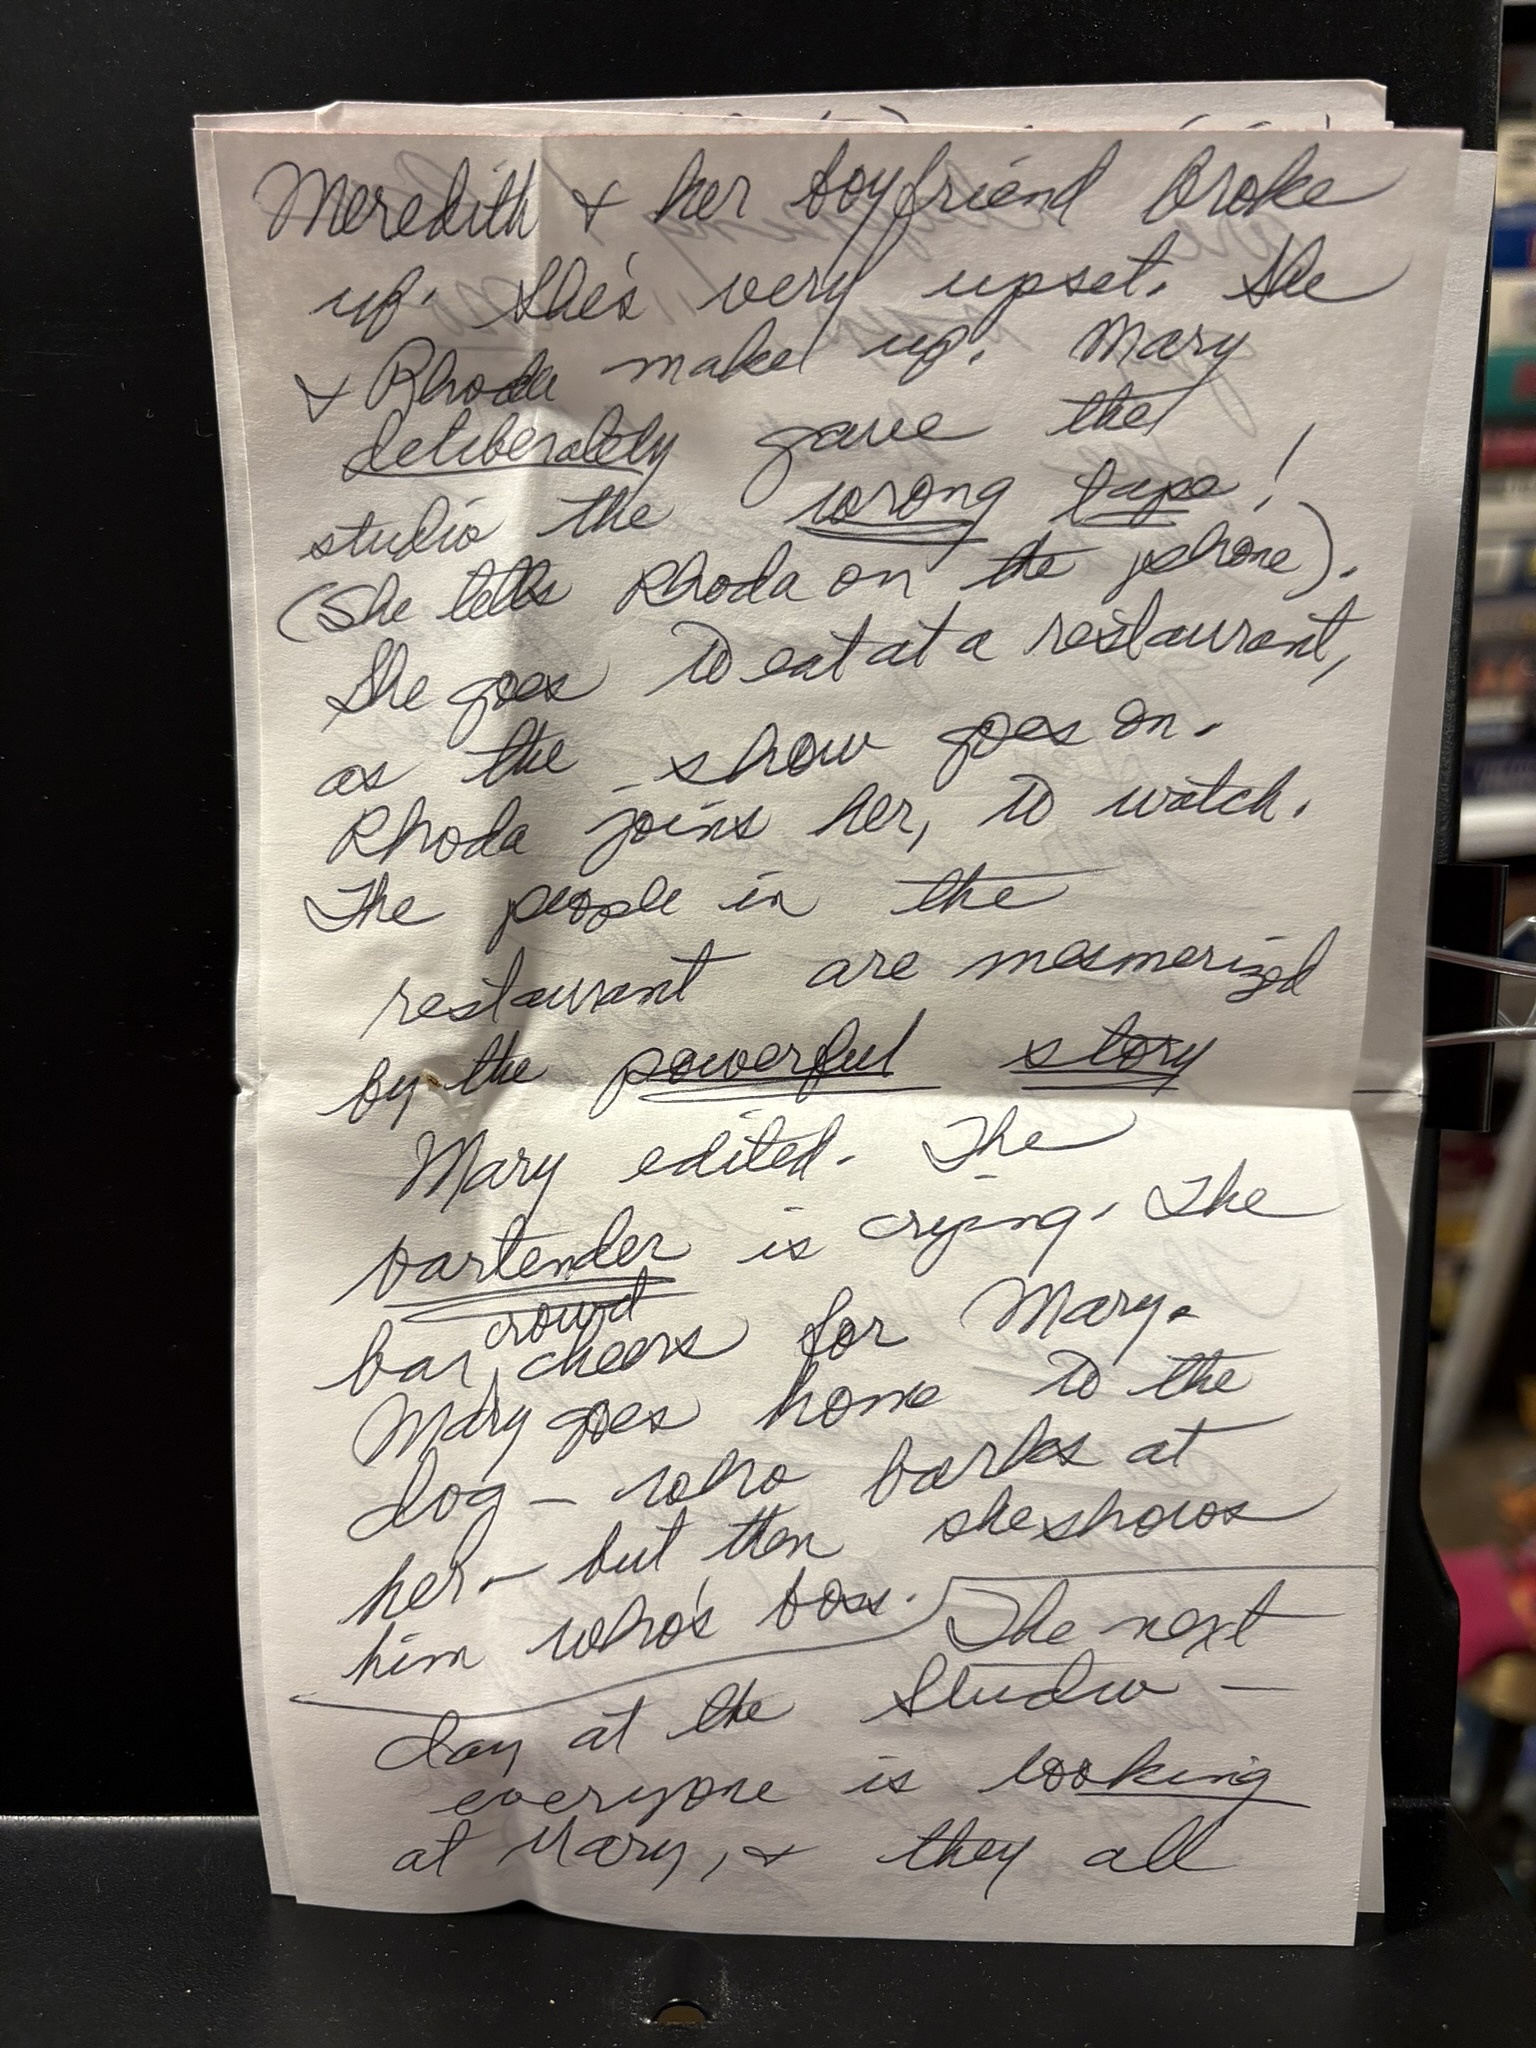 Meredith & her boyfriend broke
up. She's very upset. She
& Rhoda make up. Mary
deliberately gave the
studio the wrong tape!
(She tells Rhoda on the phone).
She goes to eat at a restaurant,
as the show goes on.
Rhoda joins her, to watch.
The people in the
restaurant are mesmerized
by the powerful story
Mary edited. The
bartender is crying. The
bar crowd cheers for Mary.
Mary goes home to the
dog – who barks at
her – but then she shows
him who's boss. The next
day at the Studio –
everyone is looking
at Mary, & they all